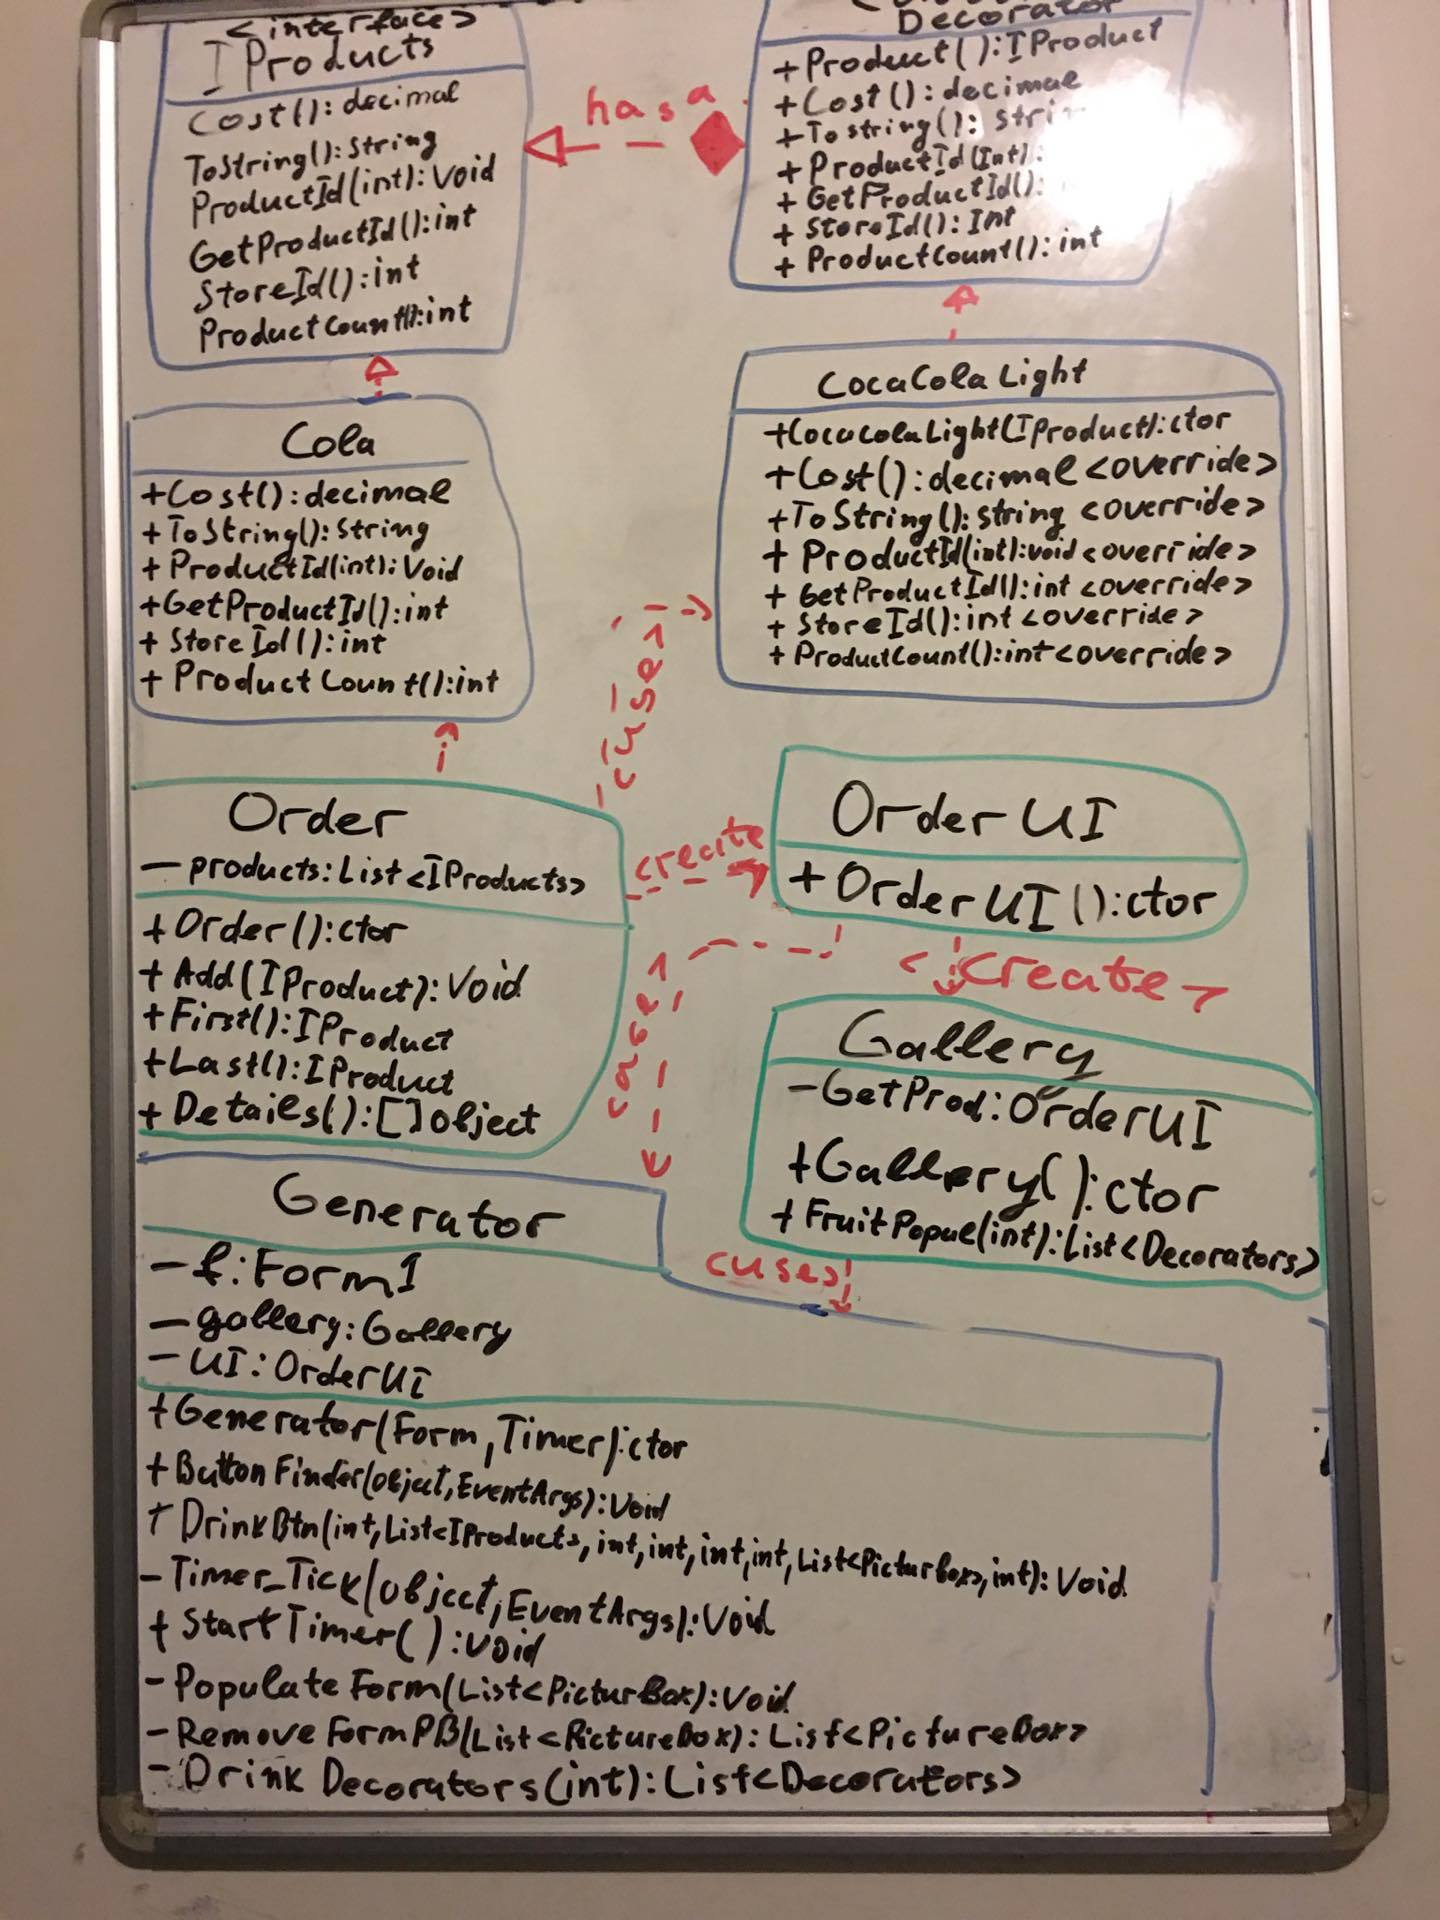 <interface>
IProducts
Cost():decimal
ToString():String
ProductId(int):Void
GetProductId():int
StoreId():int
ProductCount():int
has a
Decorator
+Product():IProduct
+Cost():decimal
+Tostring():
+ProductId(Int):
+GetProductId():
+StoreId():Int
+ProductCount():int
Cola
+Cost():decimal
+ToString():String
+ProductId(int):Void
+GetProductId():int
+StoreId():int
+ProductCount():int
CocaColaLight
+CocacolaLight(IProduct):ctor
+Cost():decimal<override>
+ToString():string<override>
+ProductId(int):void<override>
+GetProductId():int<override>
+StoreId():int<override>
+ProductCount():int<override>
<uses>
Order
-products:List<IProducts>
+Order():ctor
+Add(IProduct):Void
+First():IProduct
+Last():IProduct
+Details():[]object
create
Order UI
+Order UI():ctor
<create>
Gallery
-GetProd:OrderUI
+Gallery():ctor
+FruitPopue(int):List<Decorators>
<uses>
Generator
-f:Form1
-gallery:Gallery
-UI:OrderUI
+Generator(Form,Timer):ctor
+ButtonFinder(object,EventArgs):Void
+DrinkBtn(int,List<IProducts>,int,int,int,int,List<PicturBox>,int):Void
-Timer_Tick(object,EventArgs):Void
+StartTimer():void
-PopulateForm(List<PicturBox):Void
-RemoveFormPB(List<PictureBox):List<PictureBox>
-Drink Decorators(int):List<Decorators>